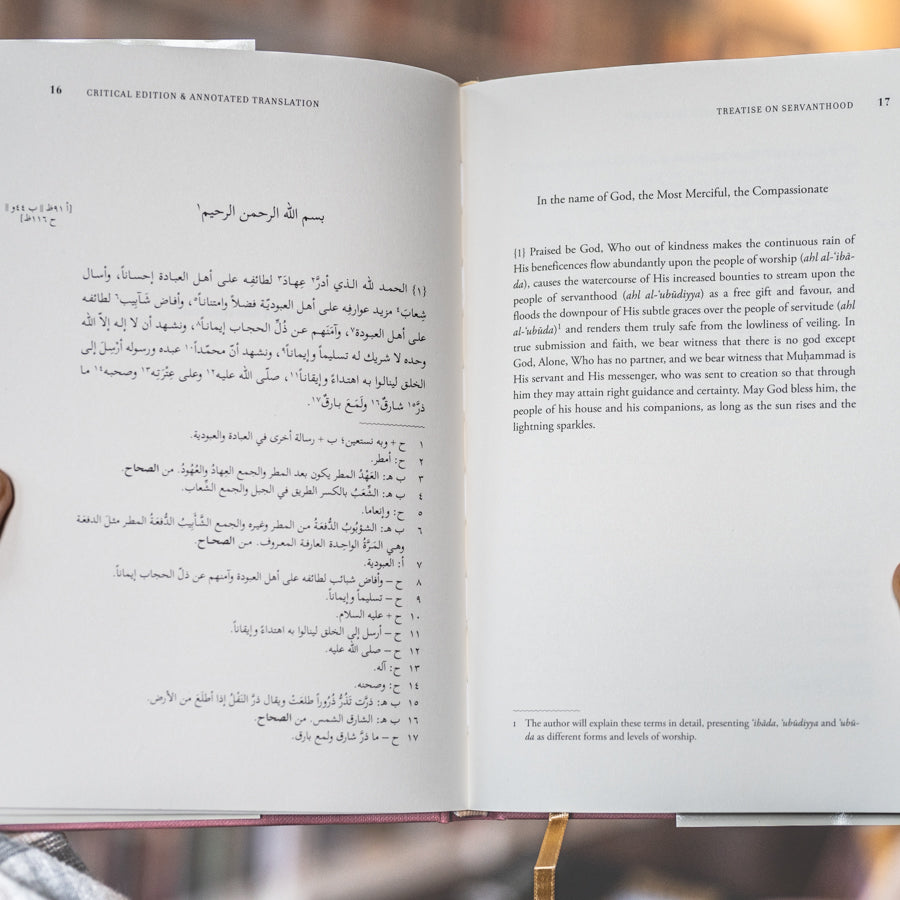 16 CRITICAL EDITION & ANNOTATED TRANSLATION
[أ ٩١ظ || ب ٤٤و ||
ح ١١٦ظ]
بسم الله الرحمن الرحيم١
{١} الحمـد لله الـذي أدرَّ٢ عِهـادَ٣ لطائفِـه علـى أهـل العبـادة إحسـاناً، وأسـال
شِعابَ٤ مزيد عوارفِـه على أهـل العبوديّـة فضـلاً وامتنانـاً٥، وأفـاض شَـآبيبَ٦ لطائفـه
على أهـل العبـودة٧، وآمَنَهـم عـن ذُلِّ الحجـاب إيمانـاً٨، ونشـهد أن لا إلـه إلاّ الله
وحده لا شريك له تسليماً وإيماناً٩، ونشهد أنّ محمّداً١٠ عبده ورسوله أُرْسِلَ إلى
الخلق لينالوا به اهتداءً وإيقاناً١١، صلّى الله عليه١٢ وعلى عِتْرَتِه١٣ وصحبه١٤ ما
ذرَّ١٥ شارقٌ١٦ ولَمَعَ بارقٌ١٧.
١ ح + وبه نستعين؛ ب + رسالة أخرى في العبادة والعبودية.
٢ ح: أمطر.
٣ ب هـ: العَهْدُ المطر يكون بعد المطر والجمع العِهادُ والعُهُودُ. من الصحاح.
٤ ب هـ: الشِّعْبُ بالكسر الطريق في الجبل والجمع الشِّعاب.
٥ ح: وإنعاما.
٦ ب هـ: الشؤبُوبُ الدُّفعَةُ من المطر وغيره والجمع الشَّآبِيبُ الدُّفعَةُ المطر مثلَ الدفعة
وهي المَرَّةُ الواحِدة العارفة المعروف. من الصحـاح.
٧ أ: العبودية.
٨ ح – وأفاض شبائب لطائفه على أهل العبودة وآمنهم عن ذلّ الحجاب إيماناً.
٩ ح – تسليماً وإيماناً.
١٠ ح + عليه السلام.
١١ ح – أرسل إلى الخلق لينالوا به اهتداءً وإيقاناً.
١٢ ح – صلى الله عليه.
١٣ ح: آله.
١٤ ح: وصحبته.
١٥ ب هـ: ذرَّت تَذُرُّ ذُرُوراً طلعَتْ ويقال ذرَّ البَقْلُ إذا أطلَعَ من الأرض.
١٦ ب هـ: الشارق الشمس. من الصحاح.
١٧ ح – ما ذرَّ شارق ولمع بارق.
TREATISE ON SERVANTHOOD 17
In the name of God, the Most Merciful, the Compassionate
{1} Praised be God, Who out of kindness makes the continuous rain of
His beneficences flow abundantly upon the people of worship (ahl al-ʿibā-
da), causes the watercourse of His increased bounties to stream upon the
people of servanthood (ahl al-ʿubūdiyya) as a free gift and favour, and
floods the downpour of His subtle graces over the people of servitude (ahl
al-ʿubūda)1 and renders them truly safe from the lowliness of veiling. In
true submission and faith, we bear witness that there is no god except
God, Alone, Who has no partner, and we bear witness that Muḥammad is
His servant and His messenger, who was sent to creation so that through
him they may attain right guidance and certainty. May God bless him, the
people of his house and his companions, as long as the sun rises and the
lightning sparkles.
1 The author will explain these terms in detail, presenting ʿibāda, ʿubūdiyya and ʿubū-
da as different forms and levels of worship.